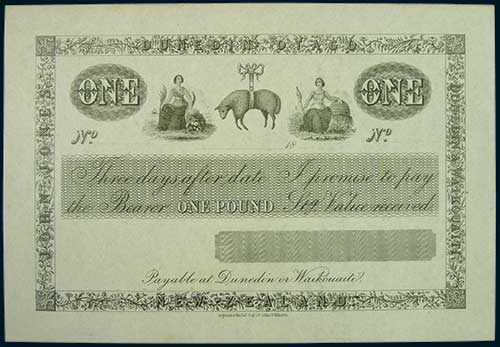 DUNEDIN OTAGO
ONE
ONE
No
No
18
JOHN JONES
DUNEDIN & WAIKOUAITI
Three days after date I promise to pay
the Bearer ONE POUND Stg Value received
Payable at Dunedin or Waikouaiti
NEW ZEALAND